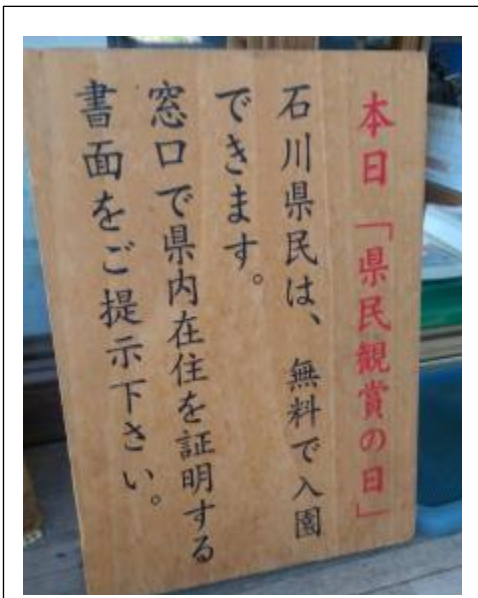 本日「県民観賞の日」
石川県民は、無料で入園
できます。
窓口で県内在住を証明する
書面をご提示下さい。